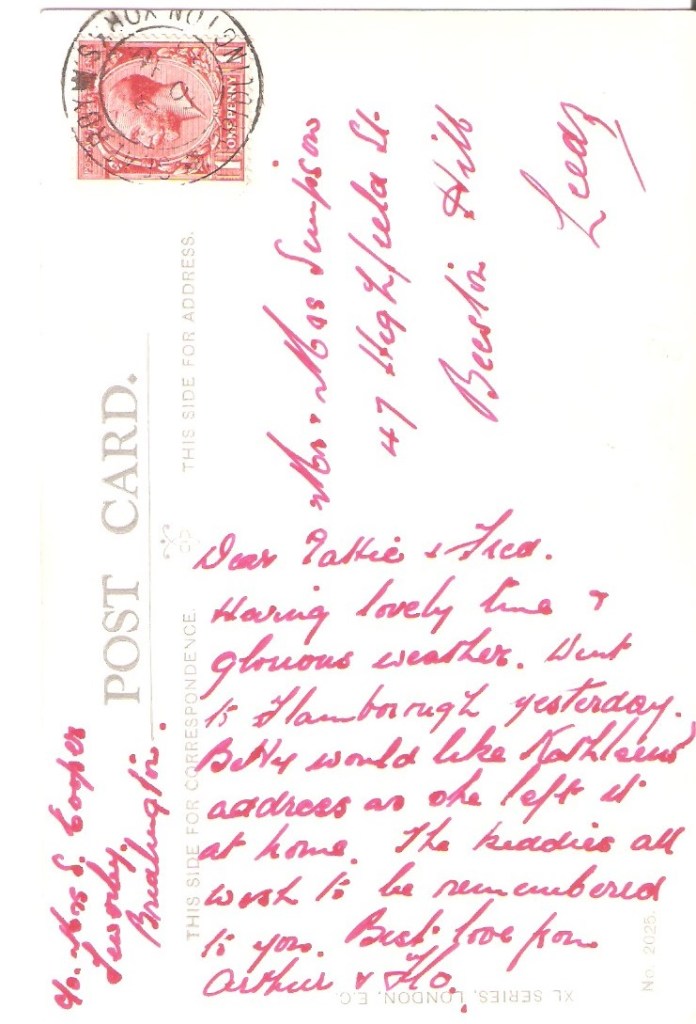 ONE PENNY
POST CARD.
THIS SIDE FOR CORRESPONDENCE.
THIS SIDE FOR ADDRESS.
c/o. Mrs S. Cooper
Bridlington.
Dear Tattie & Fred.
Having lovely time &
glorious weather. Went
to Flamborough yesterday.
Betty would like Kathleens
address as she left it
at home. The kiddies all
wish to be remembered
to you. Best love from
Arthur & Flo.
Mr & Mrs Simpson
47 Highfield St.
Beeston Hill
Leeds
XL SERIES, LONDON, E.C.
No. 2025.